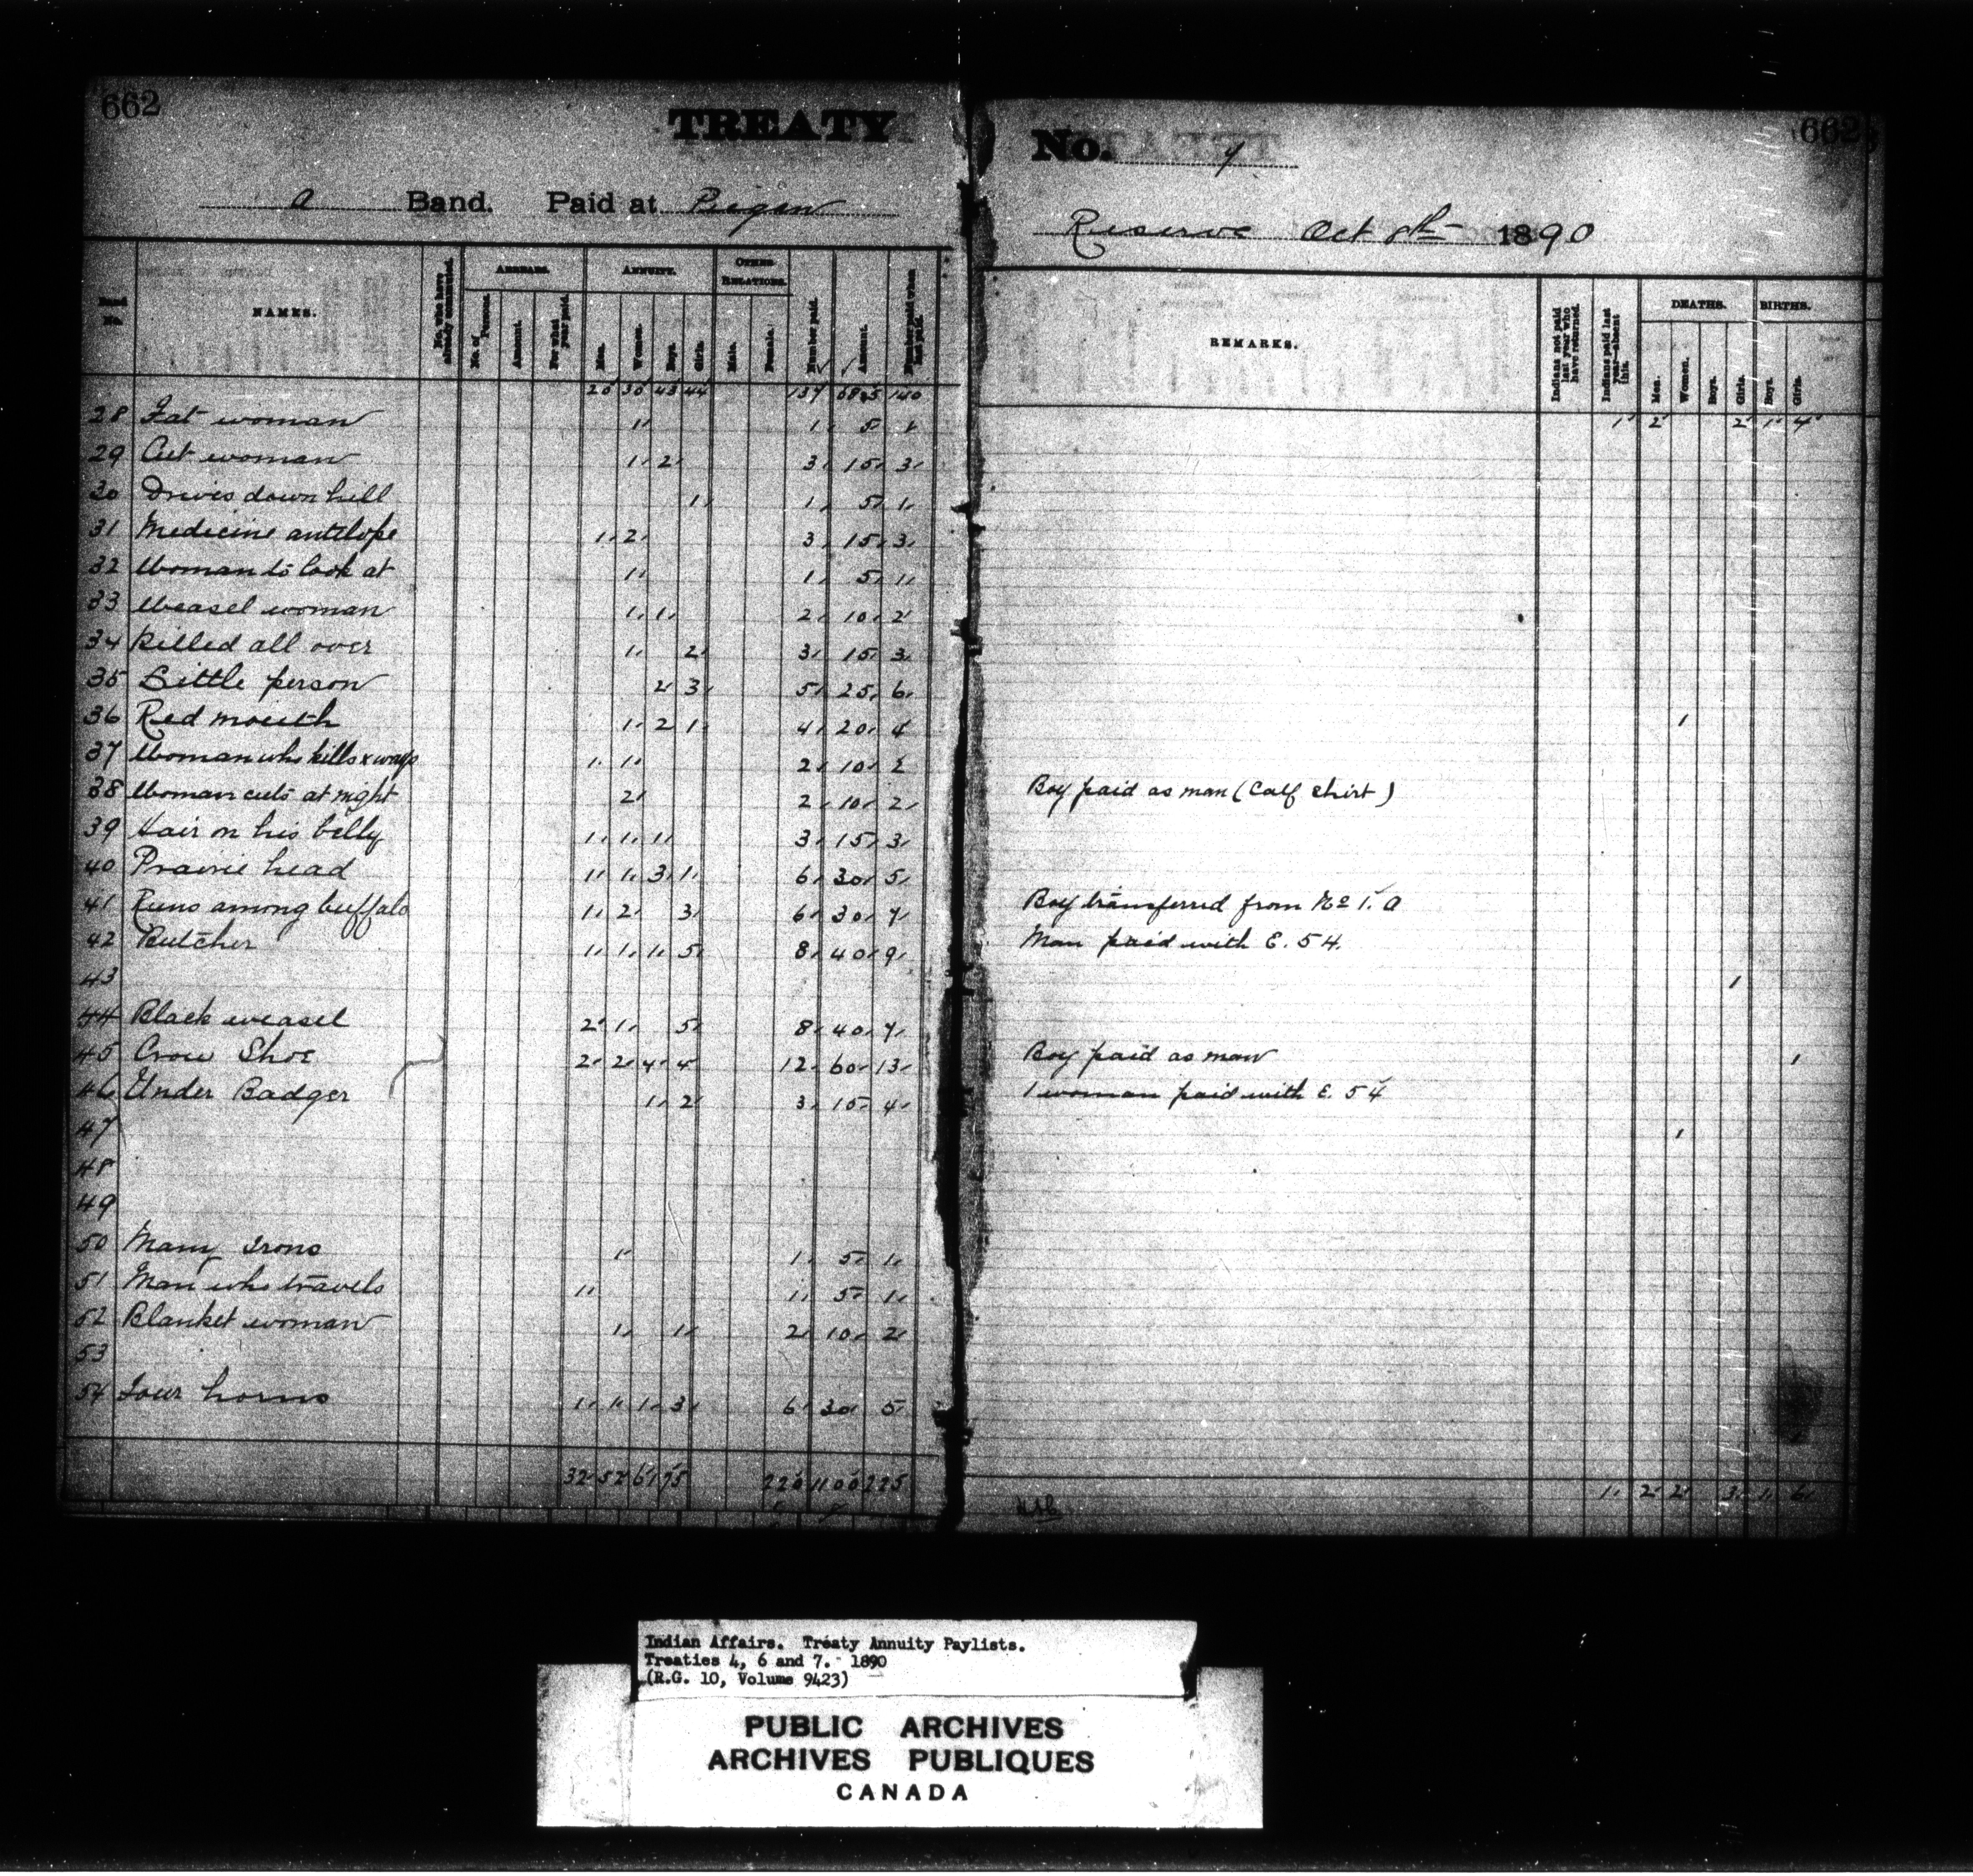 662
TREATY No. 7
662
A Band. Paid at Piegan Reserve Oct 8th 1890
Band No. NAMES. No. who have already commuted. ARREARS. No. of Persons. Amount. For what year paid. ANNUITY. Men. Women. Boys. Girls. OTHER RELATIONS. Male. Female. Number paid. Amount. Number paid when last paid. REMARKS. Indians not paid last year who have returned. Indians paid last year—absent this. DEATHS. Men. Women. Boys. Girls. BIRTHS. Boys. Girls.
20 30 43 44 137 685 140 1 2 2 1 4
28 Fat woman 1 1 5 1
29 Cut woman 1 2 3 15 3
30 Drives down hill 1 1 5 1
31 Medicine antelope 1 2 3 15 3
32 Woman to look at 1 1 5 1
33 Weasel woman 1 1 2 10 2
34 Killed all over 1 2 3 15 3
35 Little person 2 3 5 25 6 1
36 Red mouth 1 2 1 4 20 4
37 Woman who kills x ways 1 1 2 10 2 Boy paid as man (Calf Shirt)
38 Woman cuts at night 2 2 10 2
39 Hair on his belly 1 1 1 3 15 3
40 Prairie head 1 1 3 1 6 30 5 Boy transferred from No 1. A
41 Runs among buffalo 1 2 3 6 30 7 Man paid with E. 54.
42 Butcher 1 1 1 5 8 40 9 1
43
44 Black weasel 2 1 5 8 40 7 Boy paid as man 1
45 Crow Shoe 2 2 4 4 12 60 13 1 woman paid with E. 54
46 Under Badger 1 2 3 15 4 1
47
48
49
50 Many Irons 1 1 5 1
51 Man who travels 1 1 5 1
52 Blanket woman 1 1 2 10 2
53
54 Four horns 1 1 1 3 6 30 5 1
32 52 61 75 220 1100 225 1 2 2 3 1 6
Indian Affairs. Treaty Annuity Paylists.
Treaties 4, 6 and 7. 1890
(R.G. 10, Volume 9423)
PUBLIC ARCHIVES
ARCHIVES PUBLIQUES
CANADA